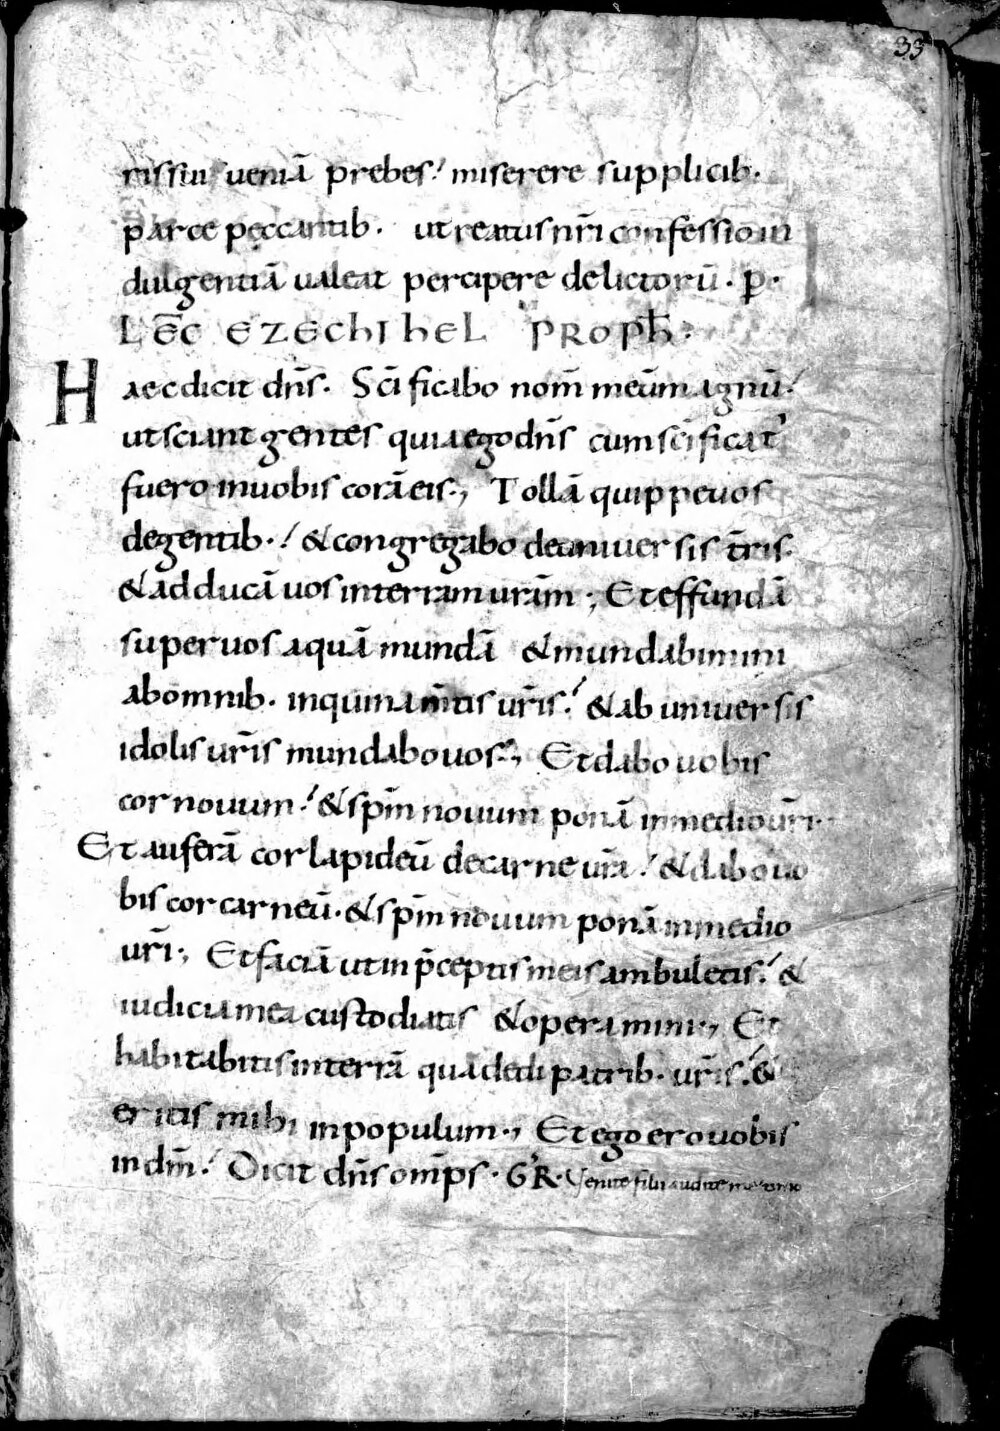 33
rissui ueniā prebes. miserere supplicib.
parce peccantib. ut reatus nr̄i confessio in
dulgentiā ualeat percipere delictorū. p̄.
LEC̄ EZECHIHEL PROPH̄.
Haec dicit dn̄s. Sc̄ificabo nom̄ meūm agnū.
ut sciant gentes quia ego dn̄s cum sc̄ificat'
fuero in uobis corā eis., Tollā quippe uos
de gentib. & congregabo de uniuersis t̄ris.
& adducā uos in terram urām ; Et effundā
super uos aquā mundā & mundabimini
ab omnib. inquinam̄tis ur̄is. & ab uniuersis
idolis ur̄is mundabo uos., Et dabo uobis
cor nouum. & sp̄m nouum ponā in medio ur̄i.
Et auferā cor lapideū de carne ur̄a. & dabo uo
bis cor carneū. & sp̄m nouum ponā in medio
ur̄i., Et faciā ut in p̄ceptis meis ambuletis. &
iudicia mea custodiatis & operamini., Et
habitabitis in terrā quā dedi patrib. ur̄is. &
eritis mihi in populum., Et ego ero uobis
in dm̄. Dicit dn̄s om̄ps. GR. Uenite filii audite me